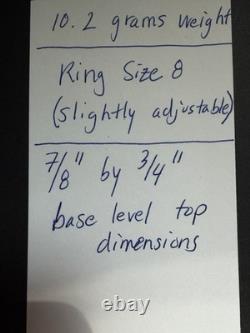 10.2 grams weight
Ring Size 8
(slightly adjustable)
7/8" by 3/4"
base level top
dimensions
ebay